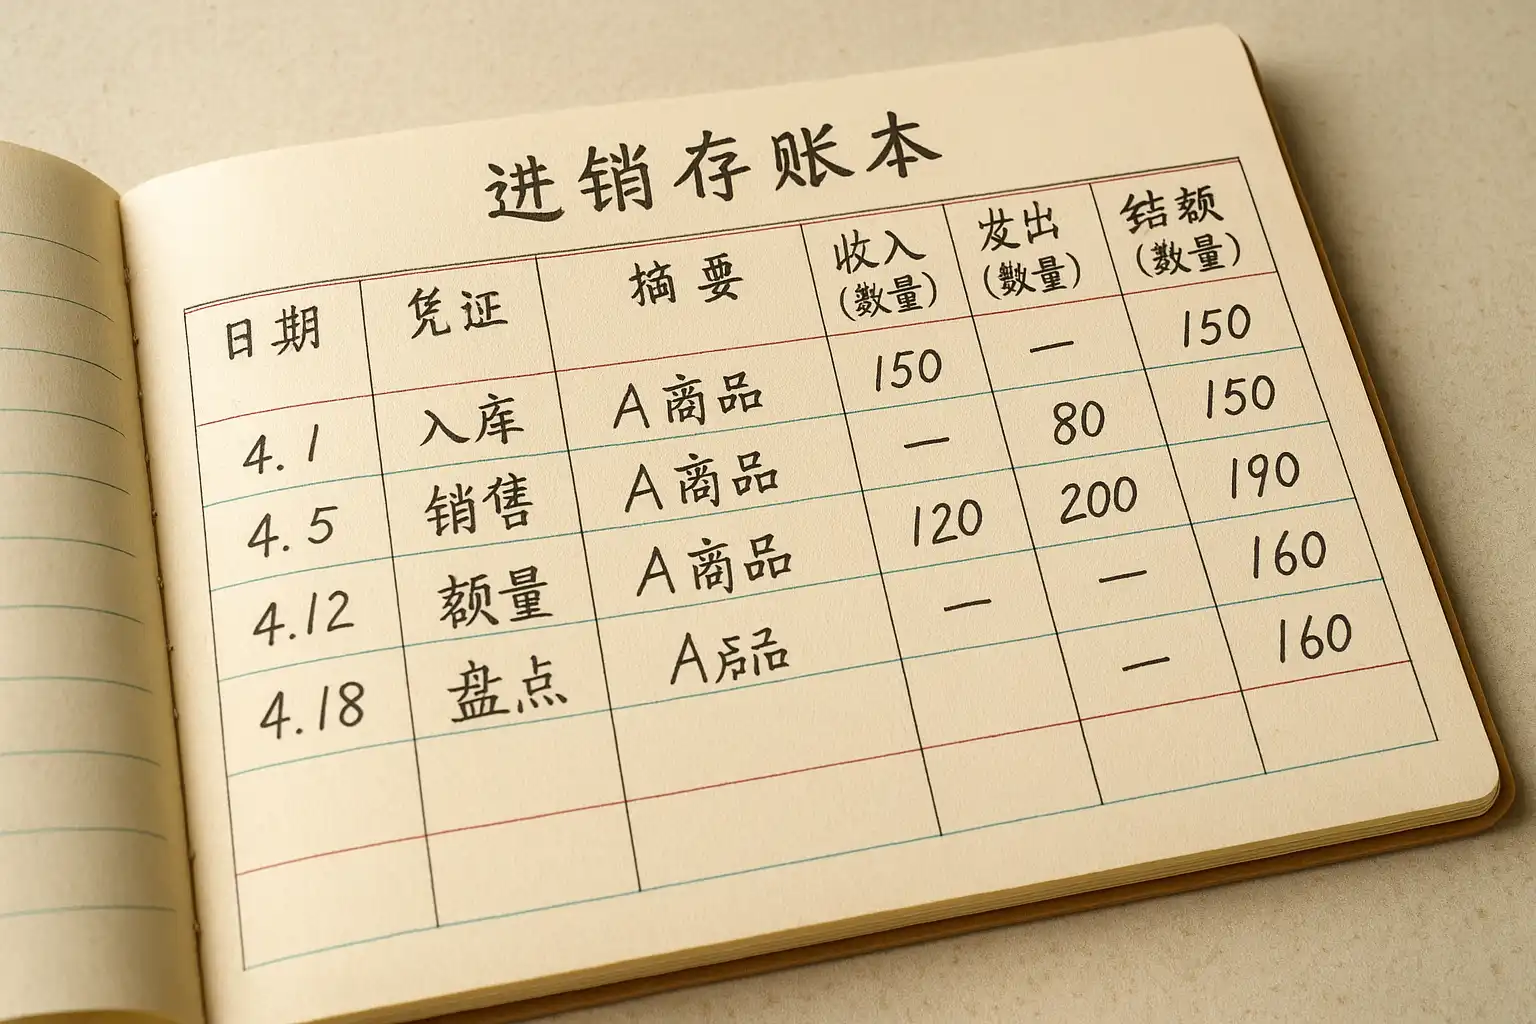 进销存账本
日期 凭证 摘要 收入 (数量) 发出 (数量) 结额 (数量)
4.1 入库 A商品 150 — 150
4.5 销售 A商品 — 80 150
4.12 额量 A商品 120 200 190
4.18 盘点 A — — 160
— 160